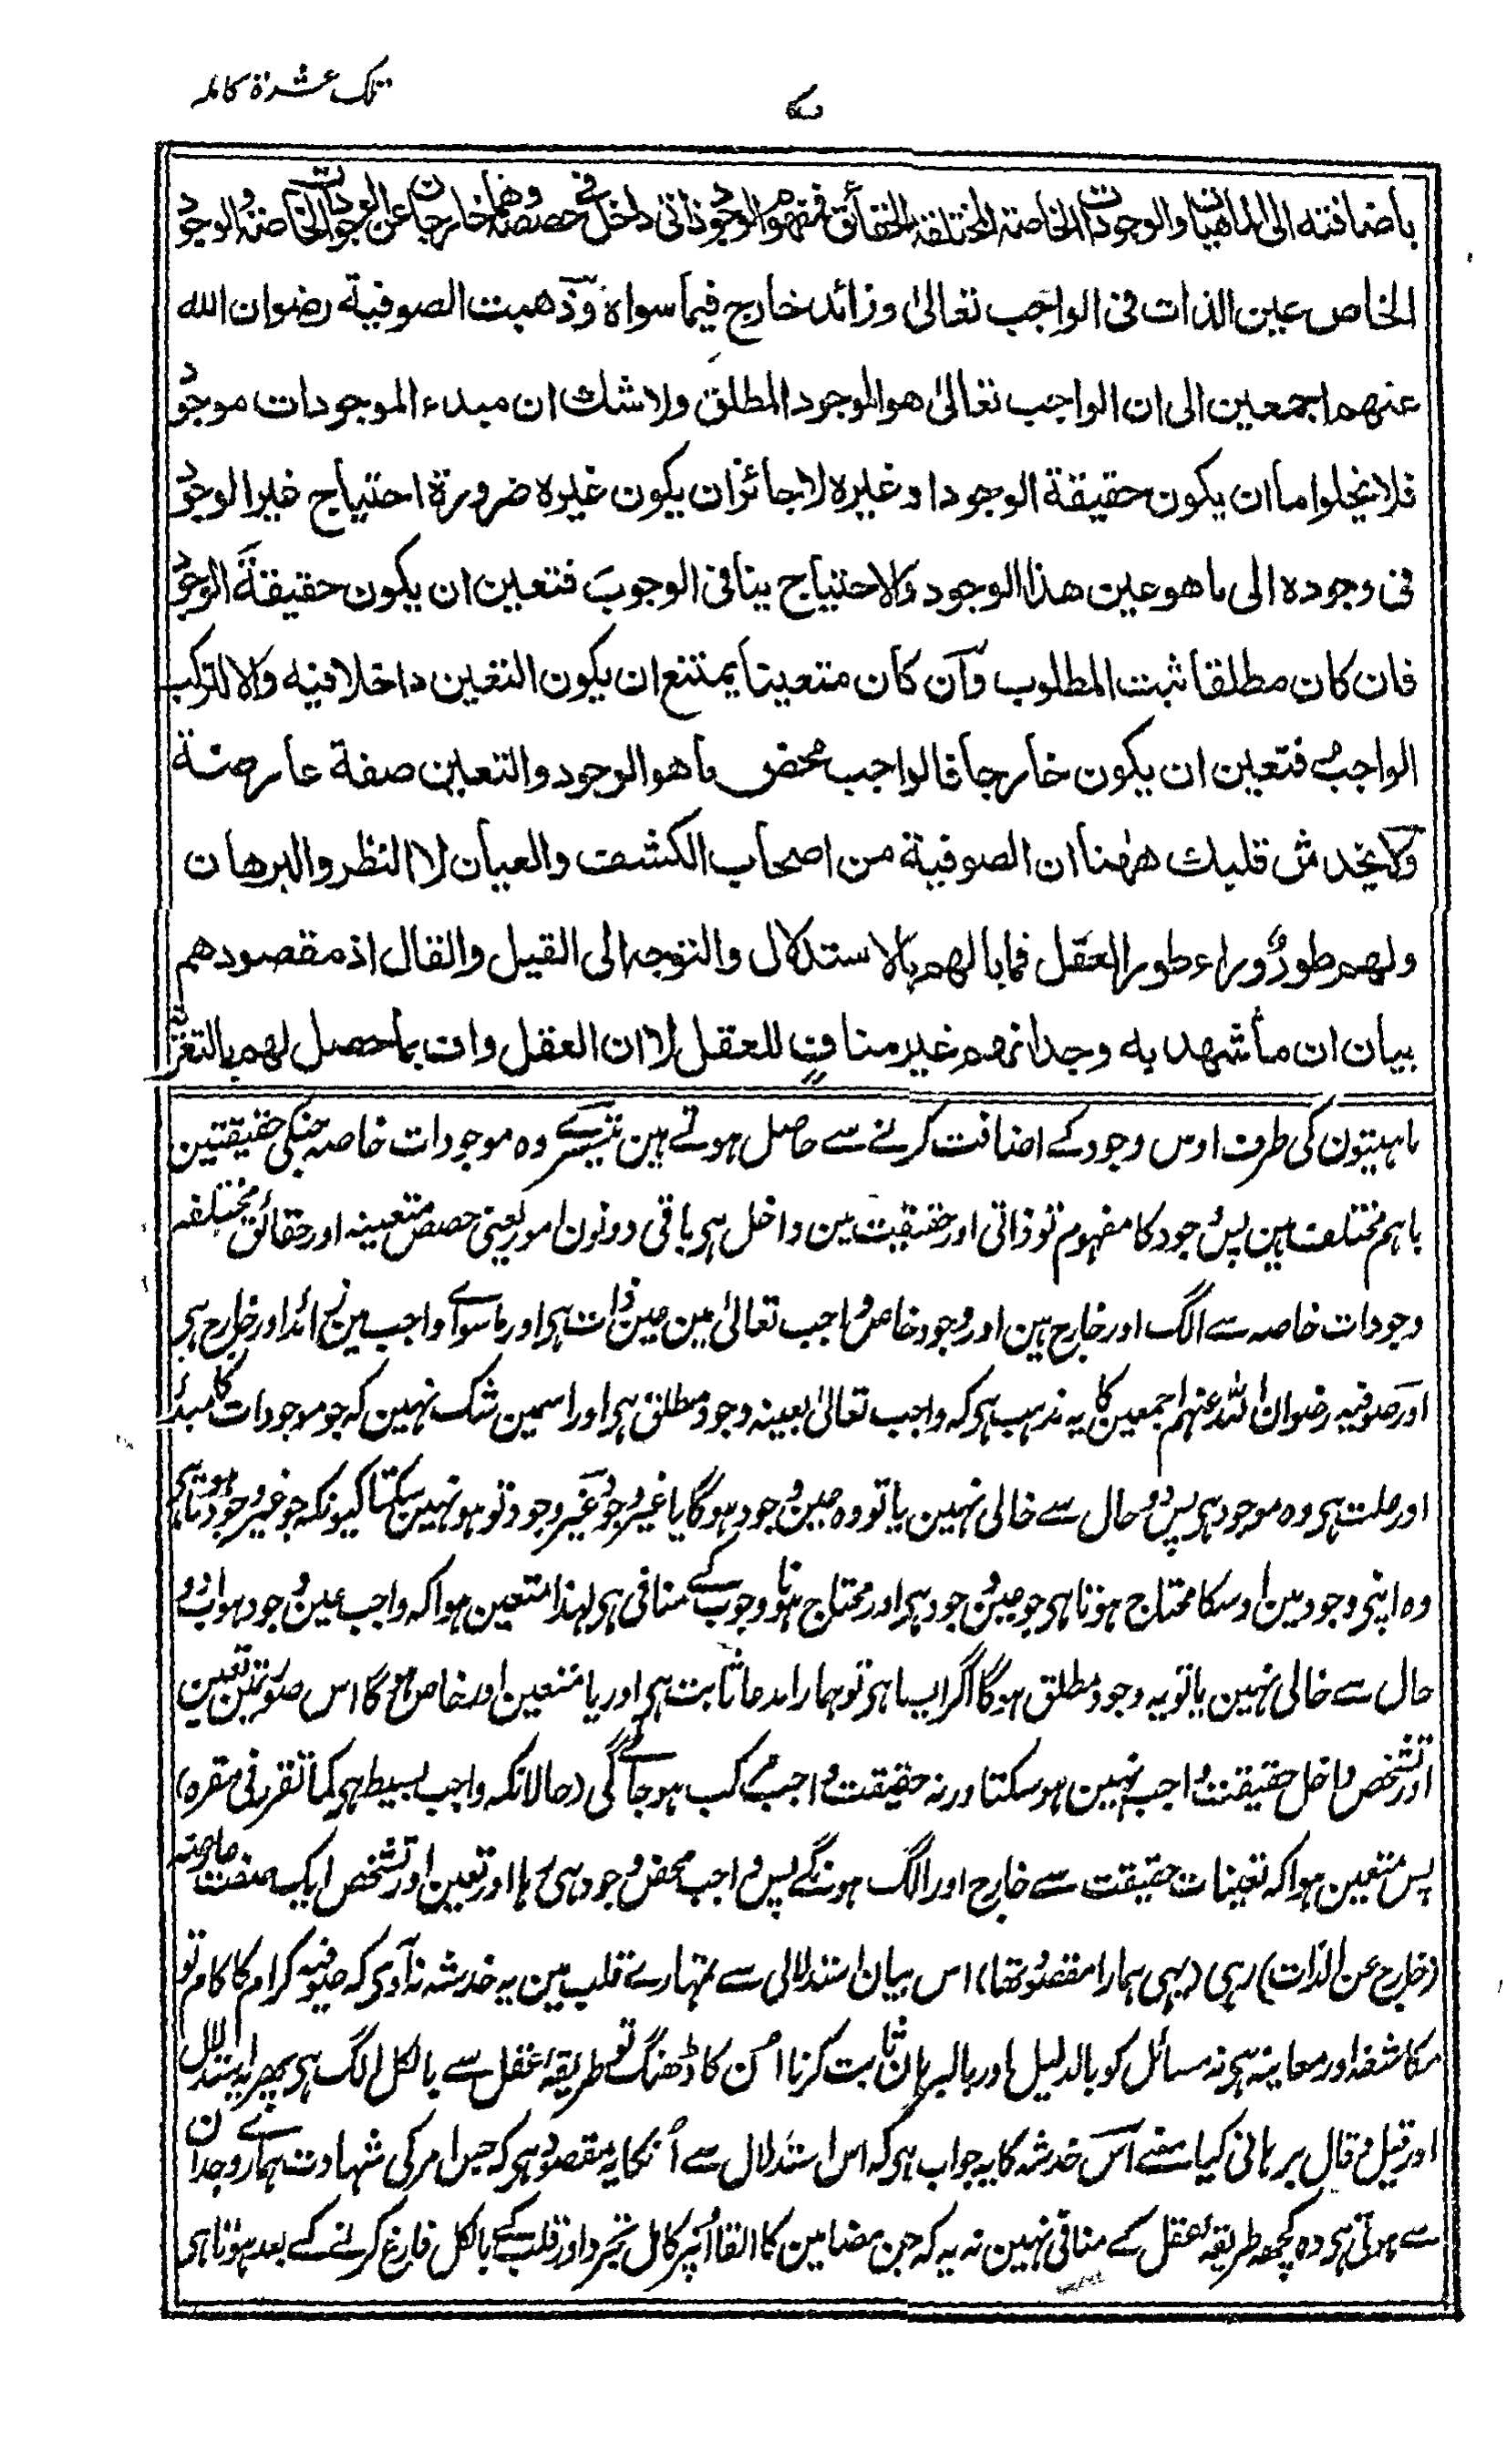 تلک عشرة کاملہ
۷
باضافتہ الی الماھیات والوجودات الخاصۃ المختلفۃ الحقائق فمفھوم الوجود ذاتی داخل فی حصصہ وھما خارجان عن الوجودات الخاصۃ والوجود
الخاص عین الذات فی الواجب تعالیٰ وزائد خارج فیما سواہ وذھبت الصوفیۃ رضوان اللہ
عنھم اجمعین الی ان الواجب تعالیٰ ھو الوجود المطلق ولا شک ان مبدء الموجودات موجود
فلا یخلوا ما ان یکون حقیقۃ الوجود او غیرہ لا جائز ان یکون غیرہ ضرورۃ احتیاج غیر الوجود
فی وجودہ الی ما ھو عین ھذا الوجود والاحتیاج ینافی الوجوب فتعین ان یکون حقیقۃ الوجود
فان کان مطلقا ثبت المطلوب وان کان متعینا یمتنع ان یکون التعین داخلا فیہ والا لترکب
الواجب فتعین ان یکون خارجا فالواجب محض ما ھو الوجود والتعین صفۃ عارضۃ
ولا یخدش قلبک ھٰھنا ان الصوفیۃ من اصحاب الکشف والعیان لا النظر والبرھان
ولھم طور وراء طور العقل فما بالھم بالاستدلال والتوجہ الی القیل والقال اذ مقصودھم
بیان ان ما شھد بہ وجدانھم غیر مناف للعقل لا ان العقل واف بما حصل لھم بالتعریۃ
ماہیتون کی طرف اوس وجود کے اضافت کرنے سے حاصل ہوتے ہین تیسرے وہ موجودات خاصہ جنکی حقیقتین
باہم مختلف ہین پس وجود کا مفہوم تو ذاتی اور حقیقت مین داخل ہی باقی دونون امور یعنی حصص متعینہ اور حقائق مختلفہ
وجودات خاصہ سے الگ اور خارج ہین اور وجود خاص واجب تعالیٰ مین عین ذات ہی اور ماسوائے واجب مین زائد اور خارج ہی
اور صوفیہ رضوان اللہ عنہم اجمعین کا یہ مذہب ہی کہ واجب تعالیٰ بعینہ وجود مطلق ہی اور اسمین شک نہین کہ جو موجودات کا مبدأ
اور علت ہی وہ موجود ہی پس دو حال سے خالی نہین یا تو وہ عین وجود ہوگا یا غیر وجود غیر وجود تو ہو نہین سکتا کیونکہ جو غیر وجود ہوتا ہی
وہ اپنی وجود مین اوسکا محتاج ہوتا ہی جو عین وجود ہی اور محتاج ہونا وجوب کے منافی ہی لہذا متعین ہوا کہ واجب عین وجود ہو اب دو
حال سے خالی نہین یا تو یہ وجود مطلق ہوگا اگر ایسا ہی تو ہمارا مدعا ثابت ہی اور یا متعین اور خاص ہوگا اس صورتمین تعین
اور تشخص داخل حقیقت واجب نہین ہو سکتا ورنہ حقیقت واجب مرکب ہو جائے گی (حالانکہ واجب بسیط ہی کما تقرر فی مقرہ)
پس متعین ہوا کہ تعینات حقیقت سے خارج اور الگ ہونگے پس واجب محض وجود ہی رہا اور تعین اور تشخص ایک صفت عارضہ
(خارج عن الذات) رہی (یہی ہمارا مقصود تھا) اس بیان استدلالی سے تمہارے قلب مین یہ خدشہ نہ آوی کہ صوفیہ کرام کا کام تو
مکاشفہ اور معاینہ ہی نہ مسائل کو بالدلیل اور بالبرہان ثابت کرنا اُن کا ڈھنگ تو طریقہ عقل سے بالکل الگ ہی پھر یہ استدلال
اور قیل و قال برہانی کیا معنے اس خدشہ کا یہ جواب ہی کہ اس استدلال سے اُنکا یہ مقصود ہی کہ جس امر کی شہادت ہمارے وجدان
سے ہوتی ہی وہ کچھ طریقہ عقل کے منافی نہین نہ یہ کہ جن مضامین کا القا اُنپر کامل تجرد اور قلب کے بالکل فارغ کرنے کے بعد ہوتا ہی